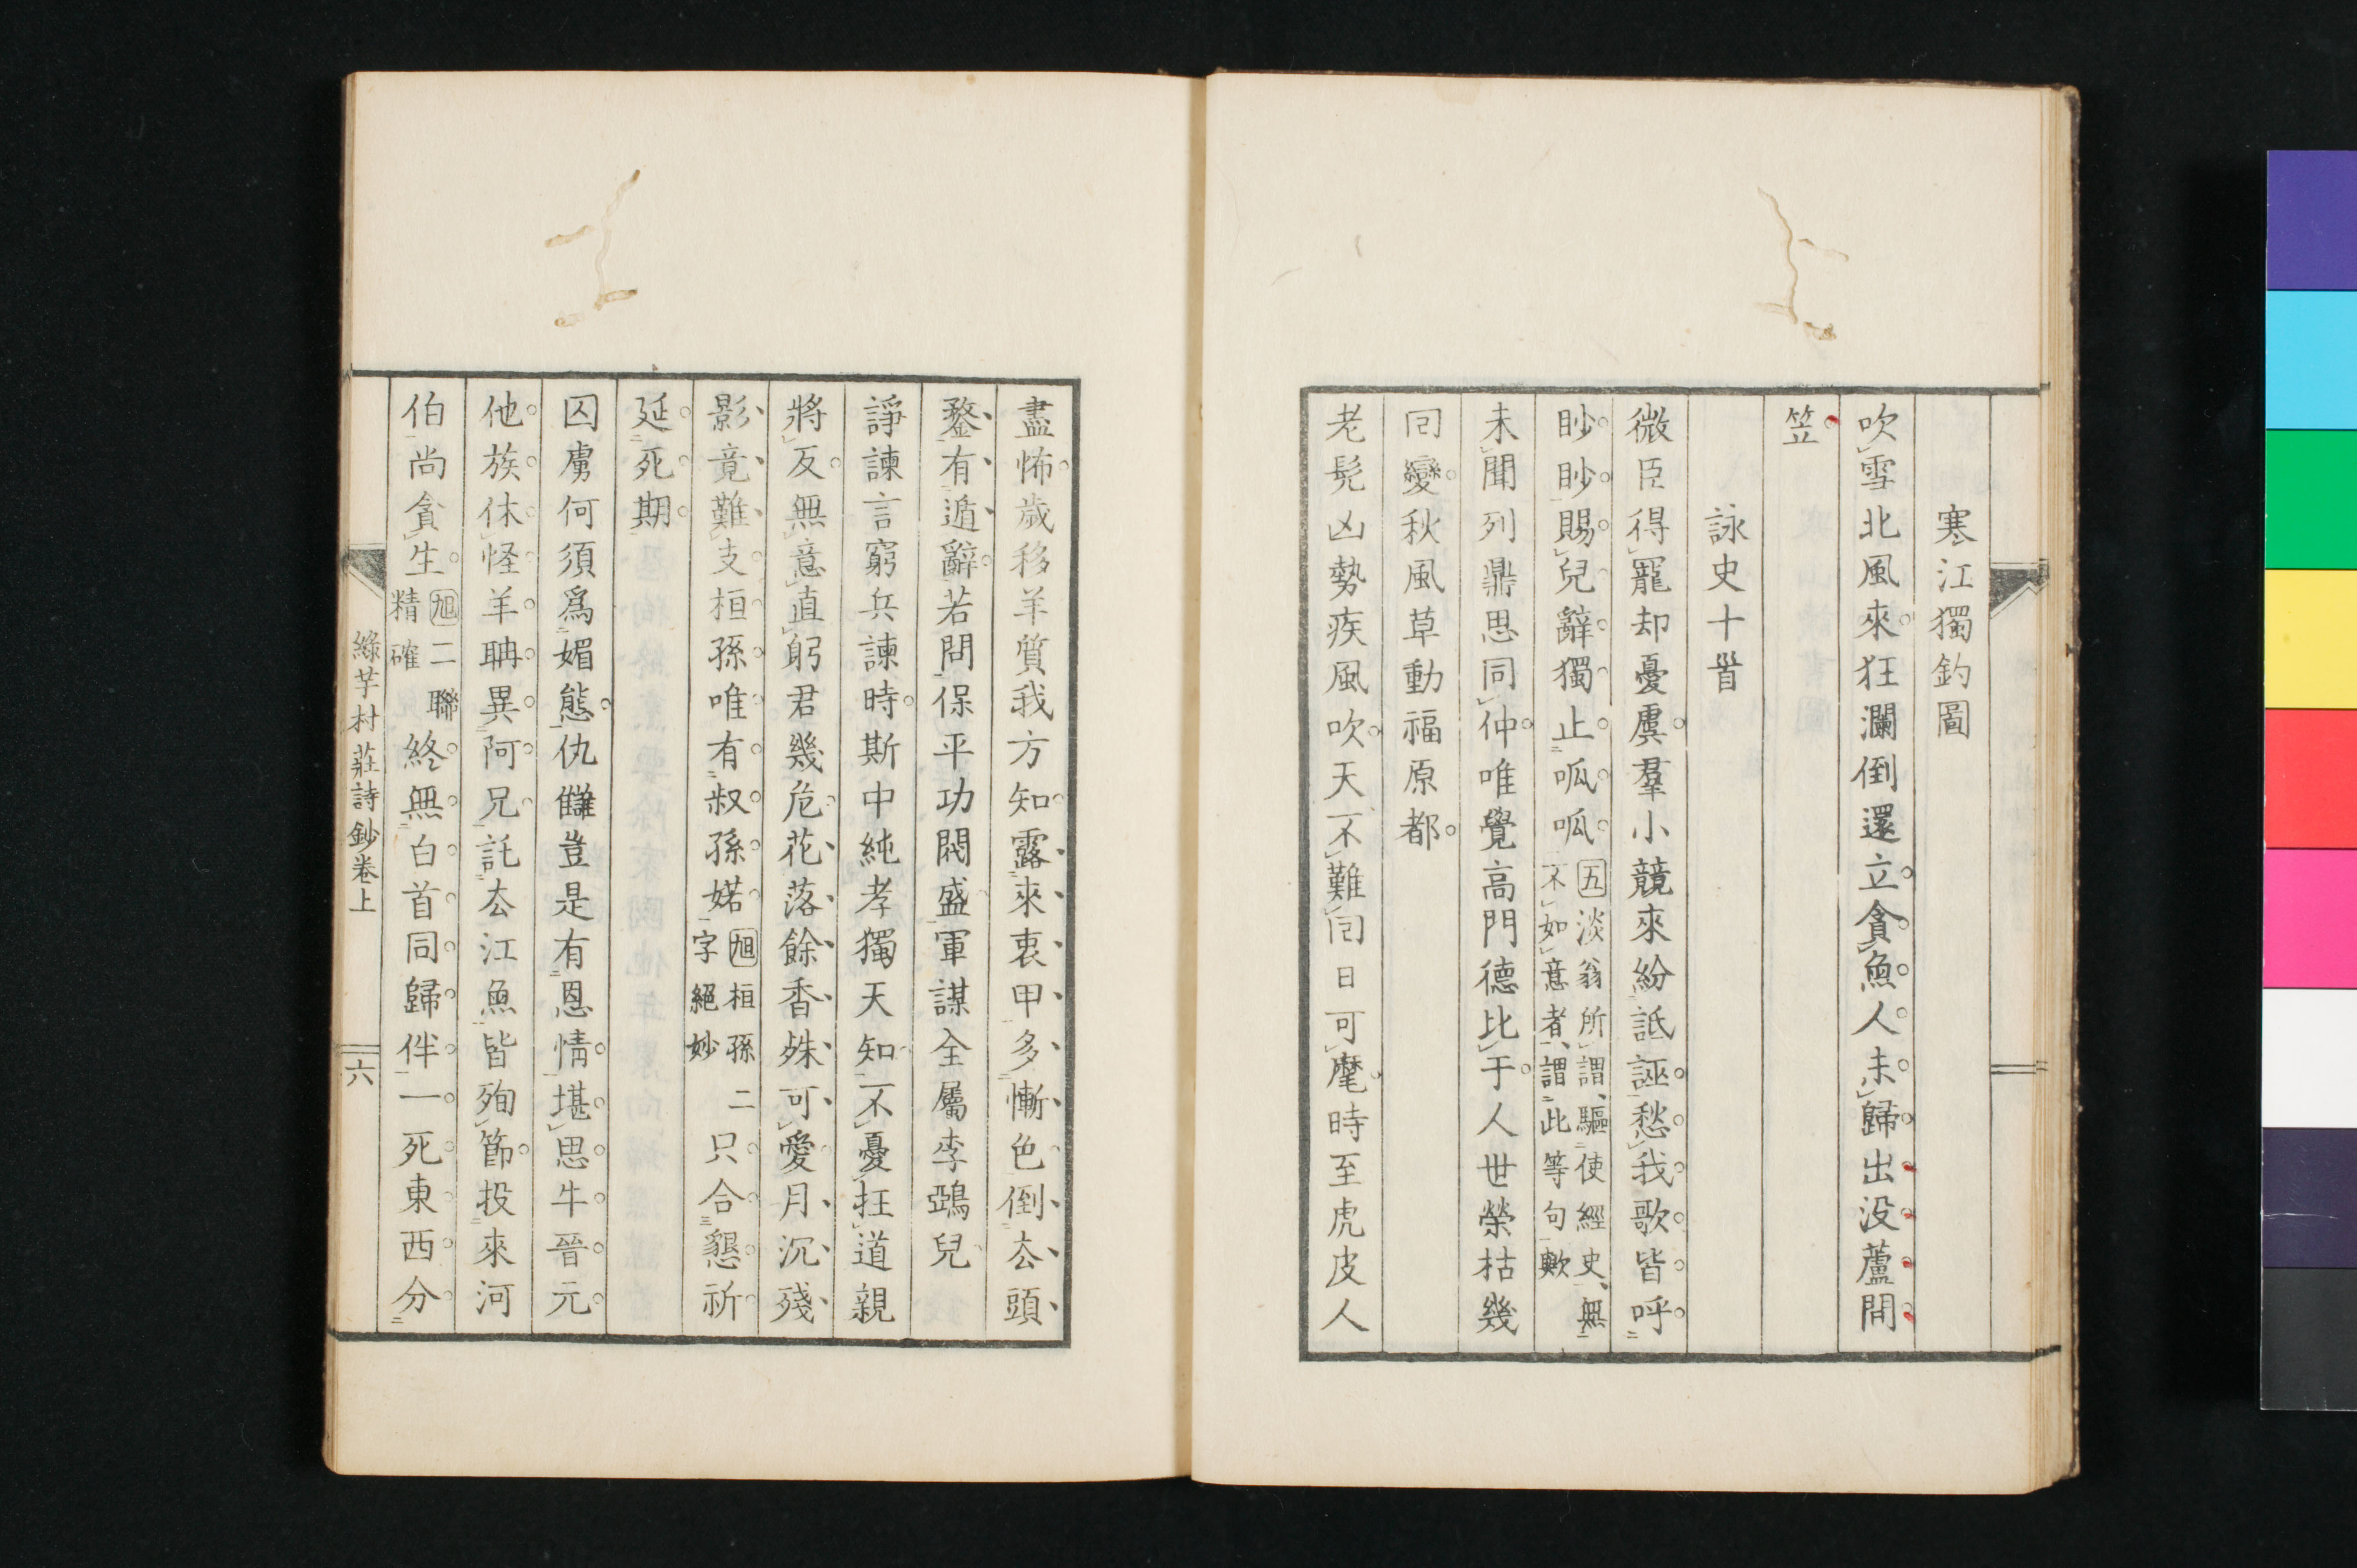 寒江獨釣圖
吹雪北風來狂瀾倒還立貪魚人未歸出没蘆間
笠
詠史十首
微臣得寵却憂虞羣小競來紛詆誣愁我歌皆呼
眇眇賜兒辭獨止呱呱五淡翁所謂驅使經史無
不如意者謂此等句歟
未聞列鼎思同仲唯覺高門德比于人世榮枯幾
回變秋風草動福原都
老髡凶勢疾風吹天不難回日可麾時至虎皮人
盡怖歳移羊質我方知露來衷甲多慚色倒厺頭
鍪有遁辭若問保平功閥盛軍謀全屬李鵶兒
諍諫言窮兵諫時斯中純孝獨天知不憂抂道親
將反無意直躬君幾危花落餘香殊可愛月沉殘
影竟難支桓孫唯有叔孫婼旭桓孫二
字絕妙只合懇祈
延死期
囚虜何須爲媚態仇讎豈是有恩情堪思牛晉元
他族休怪羊聃異阿兄託厺江魚皆殉節投來河
伯尚貪生旭二聯
精確終無白首同歸伴一死東西分
綠芋村莊詩鈔卷上
六